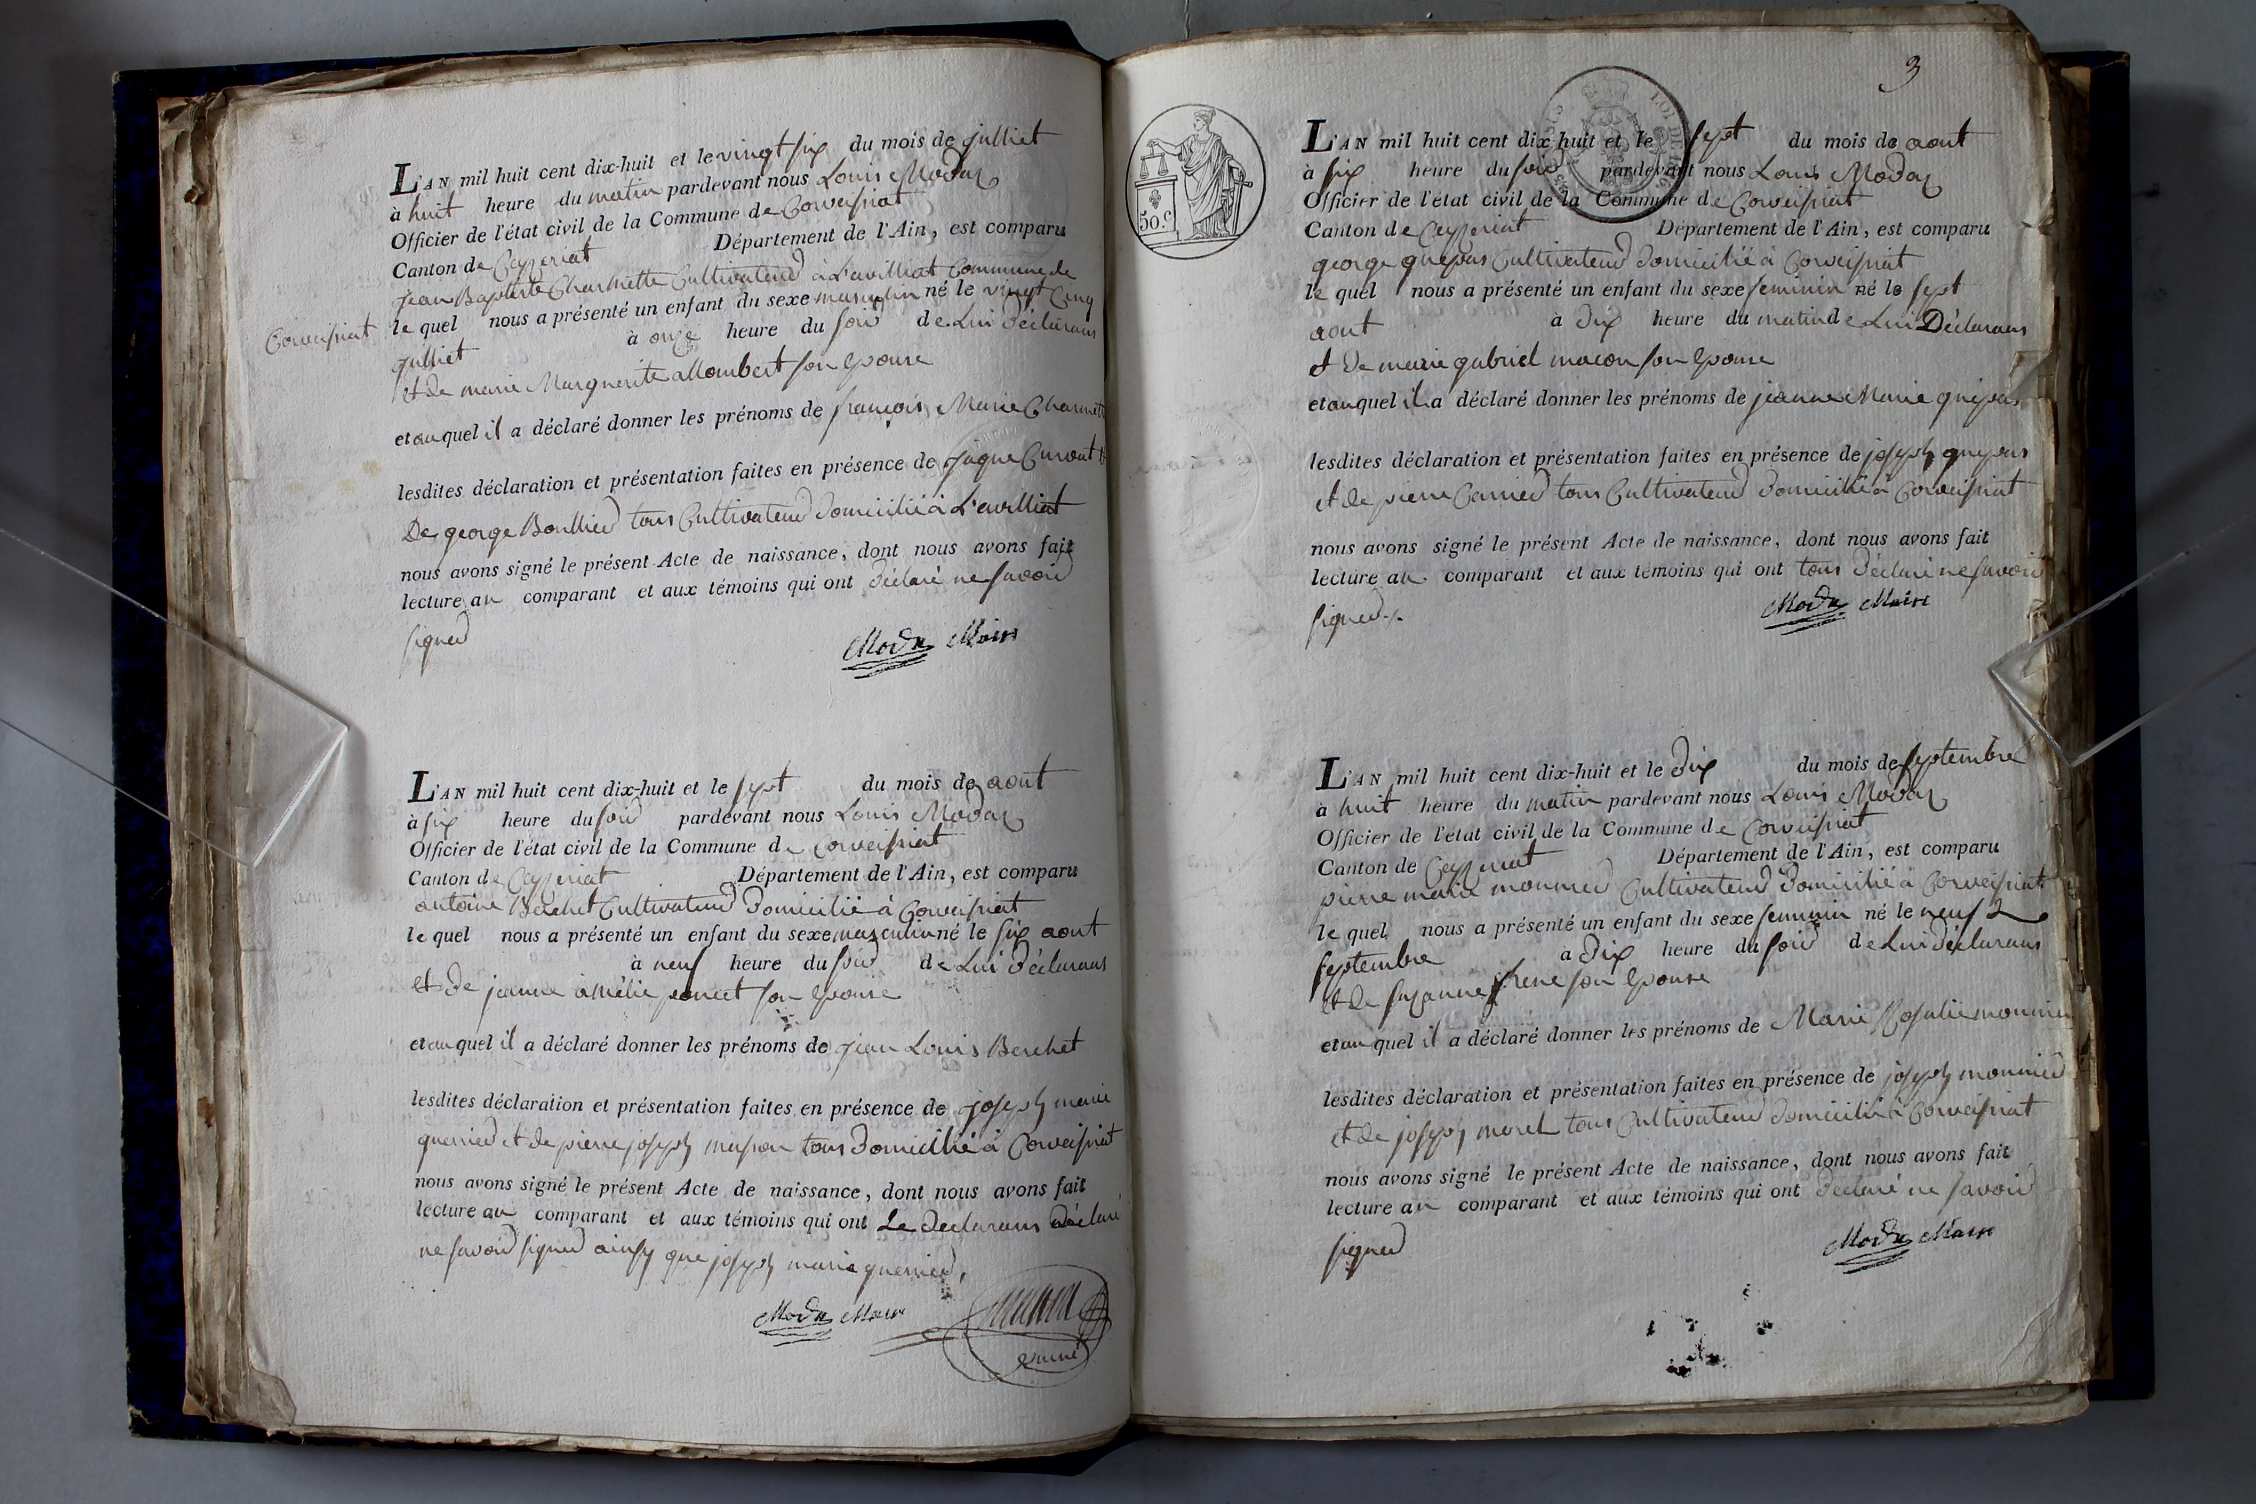 L'AN mil huit cent dix-huit et le vingt six du mois de julliet
à huit heure du matin pardevant nous Louis Modas
Officier de l'état civil de la Commune de Corveissiat
Canton de Ceyzeriat Département de l'Ain, est comparu
jean Baptiste Charmette Cultivateur à L'avilliat Commune de
Corveissiat
le quel nous a présenté un enfant du sexe masculin né le vingt Cinq
julliet à onze heure du soir de Lui déclarans
et de marie Marguerite allombert son epouse
et au quel il a déclaré donner les prénoms de françois Marie Charmette
lesdites déclaration et présentation faites en présence de jaque Curvat et
De george Boullier tous Cultivateur domicilié à L'avilliat
nous avons signé le présent Acte de naissance, dont nous avons fait
lecture au comparant et aux témoins qui ont déclaré ne savoir
signer
Modas Maire
L'AN mil huit cent dix-huit et le sept du mois de aout
à six heure du soir pardevant nous Louis Modas
Officier de l'état civil de la Commune de Corveissiat
Canton de Ceyzeriat Département de l'Ain, est comparu
antoine Berchet Cultivateur domicilié à Corveissiat
le quel nous a présenté un enfant du sexe masculin né le six aout
à neuf heure du soir de Lui déclarans
et de jeanne amélie poncet son epouse
et au quel il a déclaré donner les prénoms de jean Louis Berchet
lesdites déclaration et présentation faites en présence de joseph marie
guerrier et de pierre joseph masson tous domicilié à Corveissiat
nous avons signé le présent Acte de naissance, dont nous avons fait
lecture au comparant et aux témoins qui ont Le declarans déclaré
ne savoir signer ainsy que joseph marie guerrier,
Modas Maire
3
50.c
LOI DE 1816
L'AN mil huit cent dix huit et le sept du mois de aout
à six heure du soir pardevant nous Louis Modas
Officier de l'état civil de la Commune de Corveissiat
Canton de Ceyzeriat Département de l'Ain, est comparu
george Cultivateur domicilié à Corveissiat
le quel nous a présenté un enfant du sexe feminin né le sept
aout à dix heure du matin de Lui Déclarans
et de marie gabriel macon son epouse
et au quel il a déclaré donner les prénoms de jeanne Marie
lesdites déclaration et présentation faites en présence de joseph
et de pierre Carrier tous Cultivateur domicilié à Corveissiat
nous avons signé le présent Acte de naissance, dont nous avons fait
lecture au comparant et aux témoins qui ont tous déclaré ne savoir
signer.
Modas Maire
L'AN mil huit cent dix-huit et le dix du mois de septembre
à huit heure du matin pardevant nous Louis Modas
Officier de l'état civil de la Commune de Corveissiat
Canton de Ceyzeriat Département de l'Ain, est comparu
pierre marie monnier Cultivateur domicilié à Corveissiat
le quel nous a présenté un enfant du sexe feminin né le neuf de
septembre à dix heure du soir de Lui déclarans
et de suzanne frene son epouse
et au quel il a déclaré donner les prénoms de Marie Rosalie monnier
lesdites déclaration et présentation faites en présence de joseph monnier
et de joseph morel tous Cultivateur domicilié à Corveissiat
nous avons signé le présent Acte de naissance, dont nous avons fait
lecture au comparant et aux témoins qui ont declaré ne savoir
signer
Modas Maire